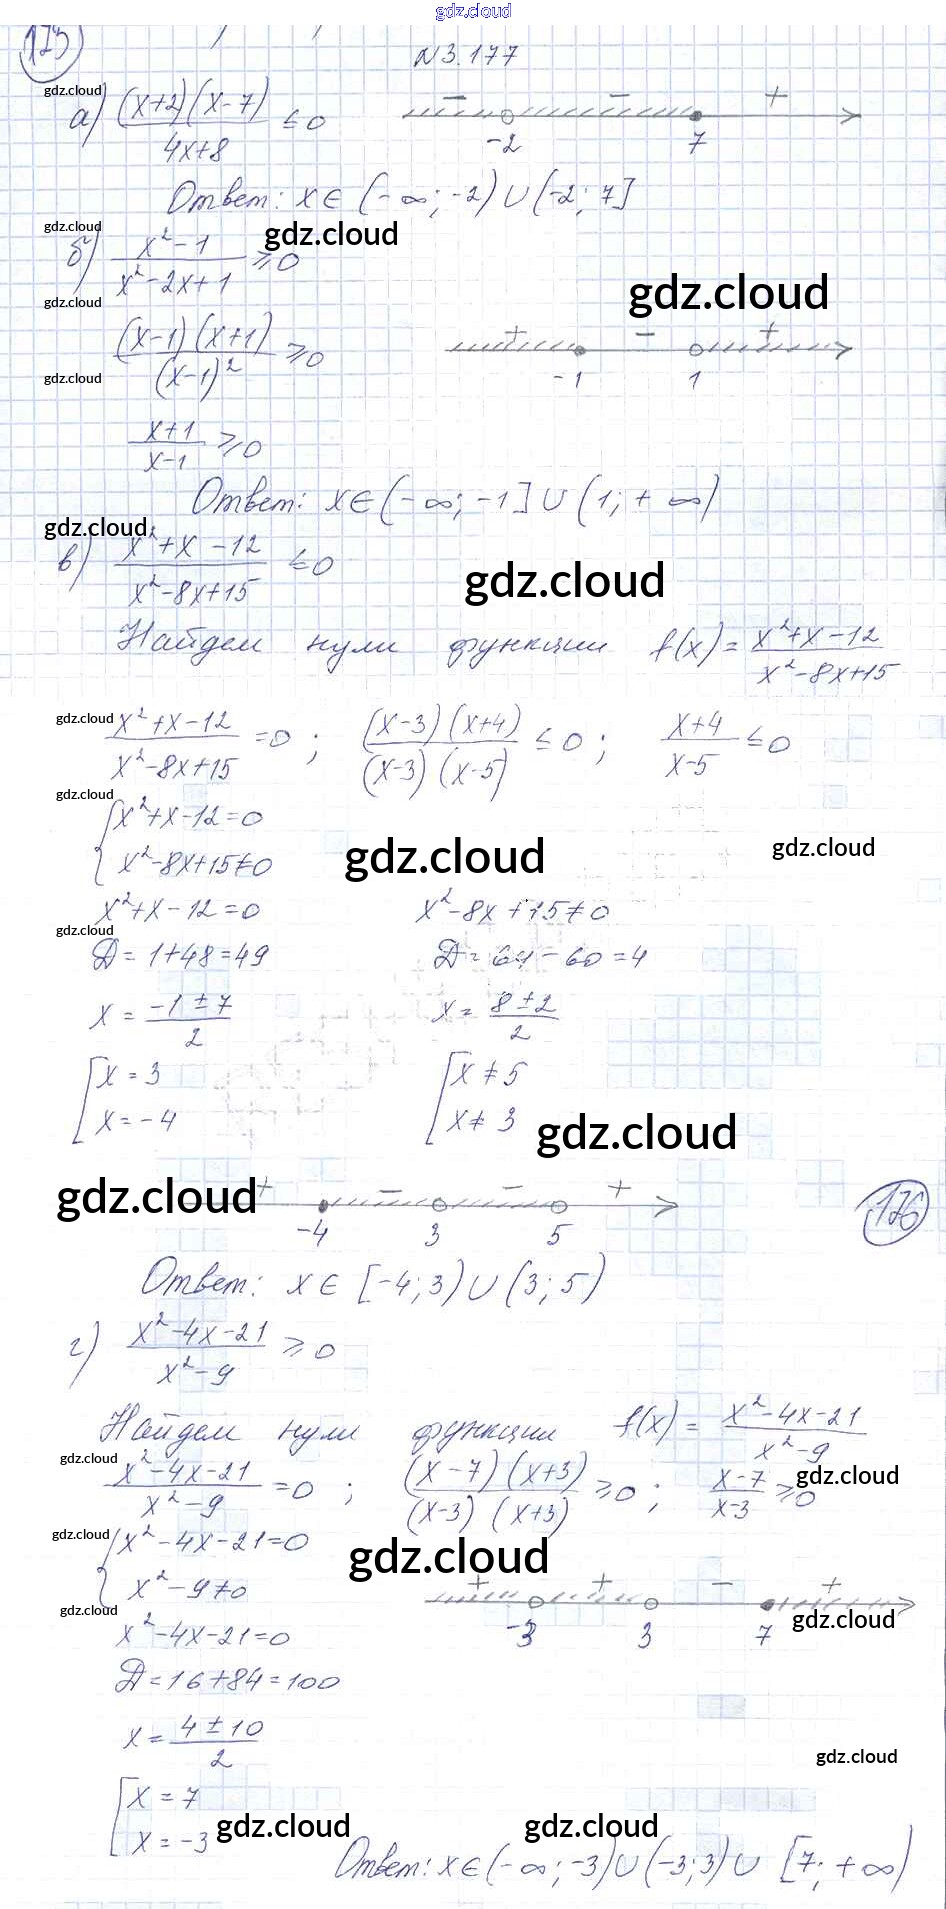 gdz.cloud
173
N 3.177
gdz.cloud
а) (x+2)(x-7) / 4x+8 ≤ 0
- - +
-2 7
Ответ: x ∈ (-∞; -2) ∪ (-2; 7]
gdz.cloud
gdz.cloud
б) x²-1 / x²-2x+1 ≥ 0
gdz.cloud
gdz.cloud
(x-1)(x+1) / (x-1)² ≥ 0
+ - +
-1 1
gdz.cloud
x+1 / x-1 ≥ 0
Ответ: x ∈ (-∞; -1] ∪ (1; +∞)
gdz.cloud
в) x²+x-12 / x²-8x+15 ≤ 0
gdz.cloud
Найдем нули функции f(x) = x²+x-12 / x²-8x+15
gdz.cloud
x²+x-12 / x²-8x+15 = 0 ; (x-3)(x+4) / (x-3)(x-5) ≤ 0 ; x+4 / x-5 ≤ 0
gdz.cloud
{ x²+x-12=0
x²-8x+15≠0
gdz.cloud
gdz.cloud
x²+x-12=0 x²-8x+15≠0
gdz.cloud
Д=1+48=49 Д=64-60=4
x = -1±7 / 2 x = 8±2 / 2
[ x=3 [ x≠5
x=-4 x≠3
gdz.cloud
gdz.cloud
+ - - +
-4 3 5
176
Ответ: x ∈ [-4; 3) ∪ (3; 5)
г) x²-4x-21 / x²-9 ≥ 0
Найдем нули функции f(x) = x²-4x-21 / x²-9
gdz.cloud
x²-4x-21 / x²-9 = 0 ; (x-7)(x+3) / (x-3)(x+3) ≥ 0 ; x-7 / x-3 ≥ 0
gdz.cloud
gdz.cloud
{ x²-4x-21=0
x²-9≠0
gdz.cloud
+ + - +
-3 3 7
gdz.cloud
gdz.cloud
x²-4x-21=0
Д=16+84=100
x = 4±10 / 2
gdz.cloud
[ x=7
x=-3
gdz.cloud
gdz.cloud
Ответ: x ∈ (-∞; -3) ∪ (-3; 3) ∪ [7; +∞)